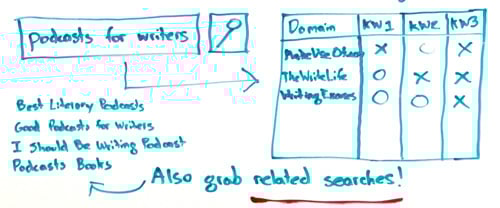 Podcasts for writers
Domain KW1 KW2 KW3
MakeUseOf X O X
TheWriteLife O X X
Writing O O X
Best Literary Podcasts
Good Podcasts for Writers
I Should Be Writing Podcast
Podcasts Books
Also grab related searches!